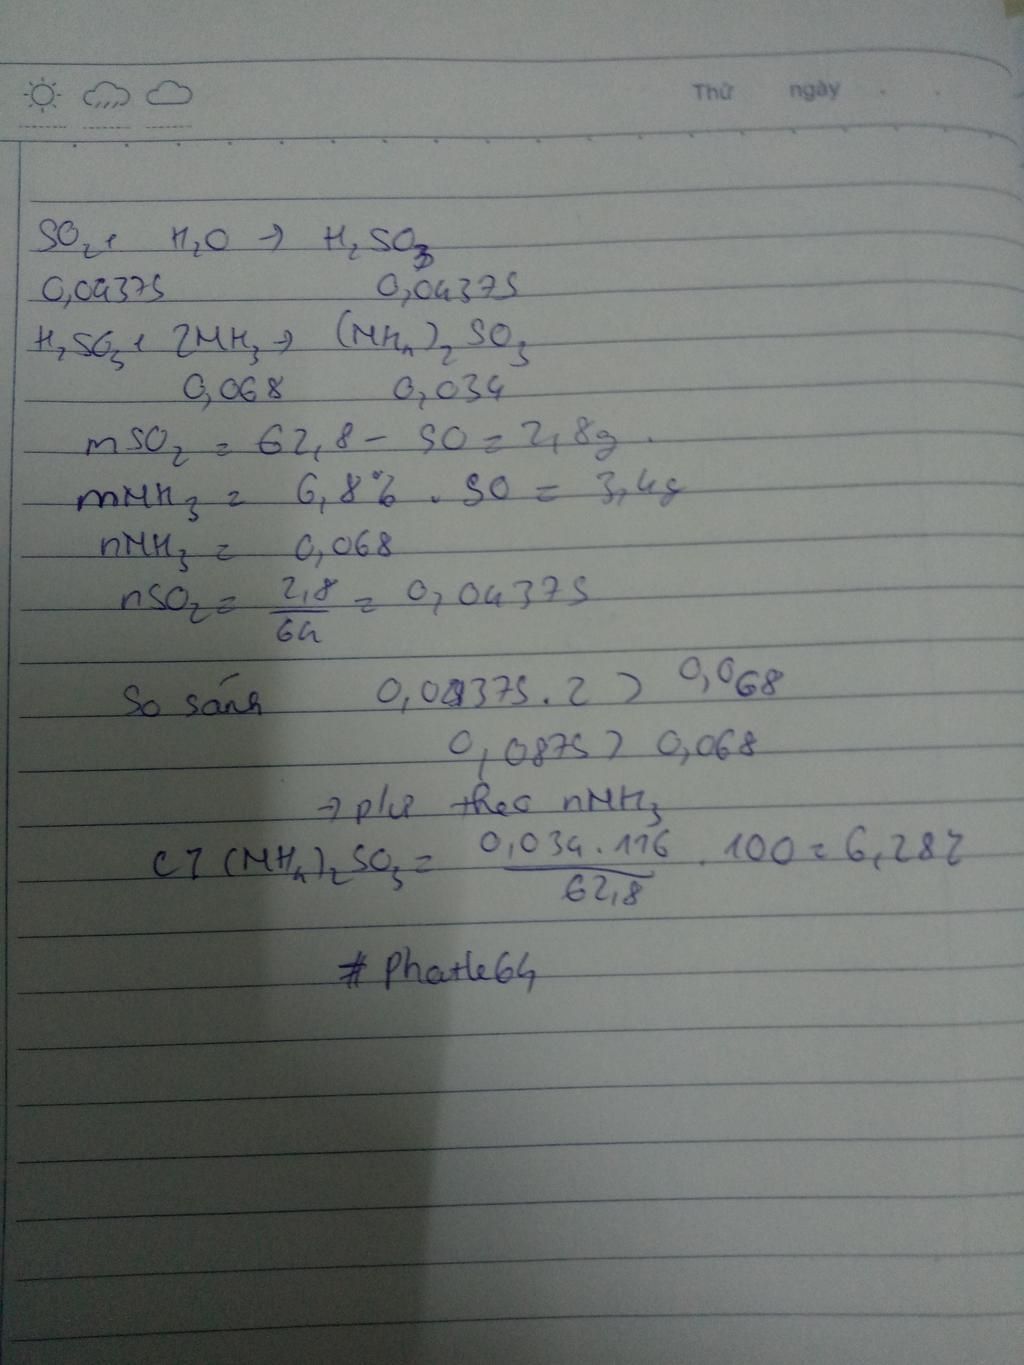 Thứ ngày
SO₂ + H₂O → H₂SO₃
0,04375 0,04375
H₂SO₃ + 2NH₃ → (NH₄)₂SO₃
0,068 0,034
mSO₂ = 62,8 - 50 = 2,8g.
mNH₃ = 6,8% . 50 = 3,4g
nNH₃ = 0,068
nSO₂ = 2,8/64 = 0,04375
So sánh 0,04375.2 > 0,068
0,0875 > 0,068
→ pư theo nNH₃
C% (NH₄)₂SO₃ = 0,034.116/62,8 . 100 = 6,28%
# Phatle64